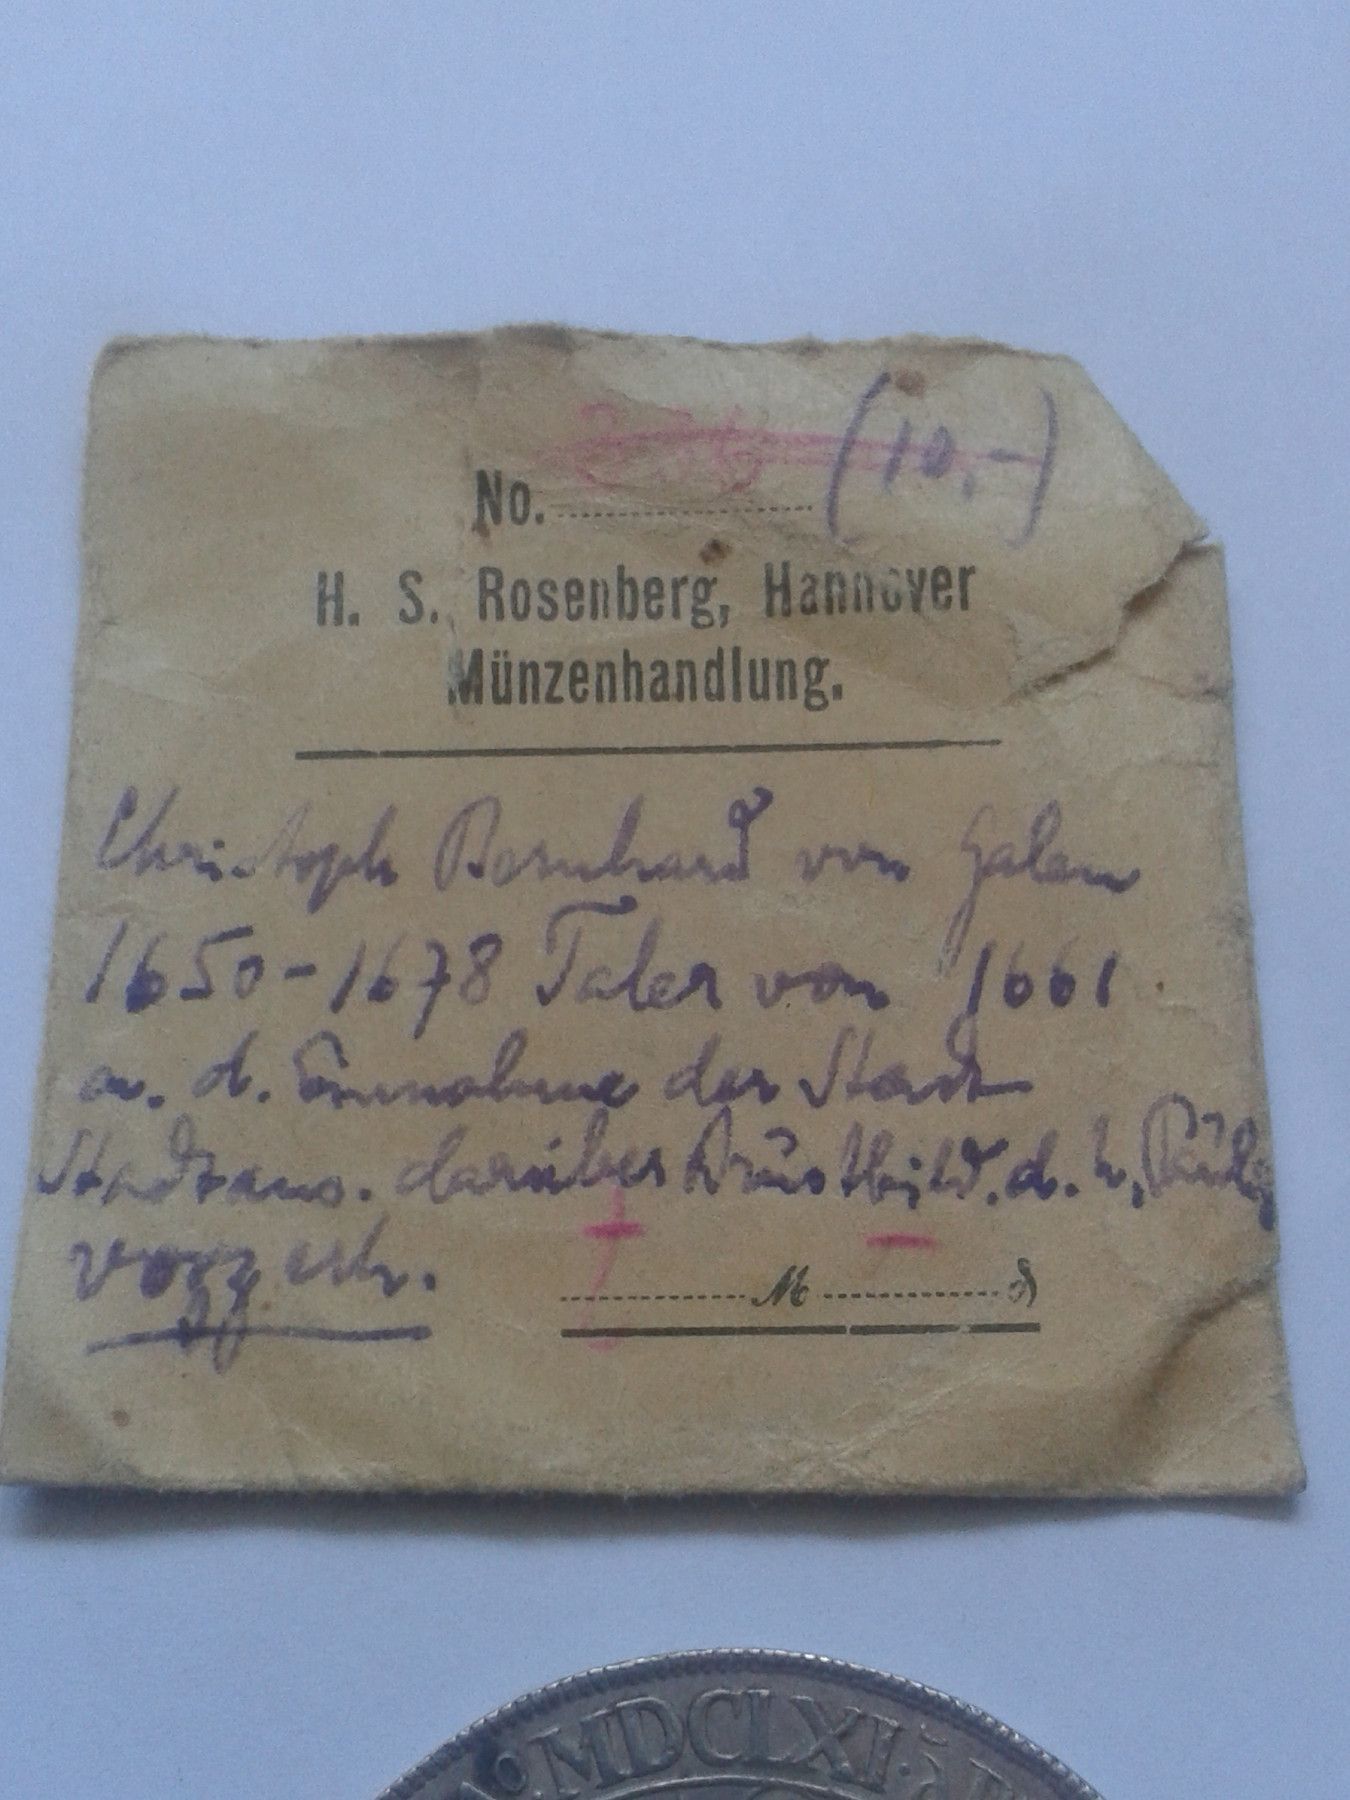 (10,-)
No.
H. S. Rosenberg, Hannover
Münzenhandlung.
Christoph Bernhard von Galen
1650-1678 Taler von 1661.
a. d. Einnahme der Stadt
Stadtans. darüber Brustbild. d. h.
vorz
M
MDCLXI.